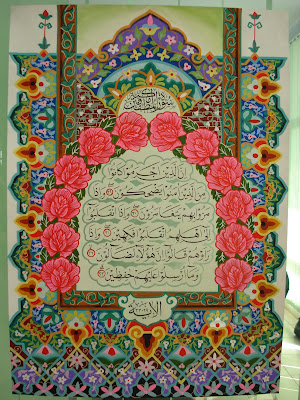 إن الذين أجرموا كانوا
من الذين آمنوا يضحكون وإذا
مروا بهم يتغامزون وإذا انقلبوا
إلى أهلهم انقلبوا فكهين وإذا
رأوهم قالوا إن هؤلاء لضالون
وما أرسلوا عليهم حفظين
الاية